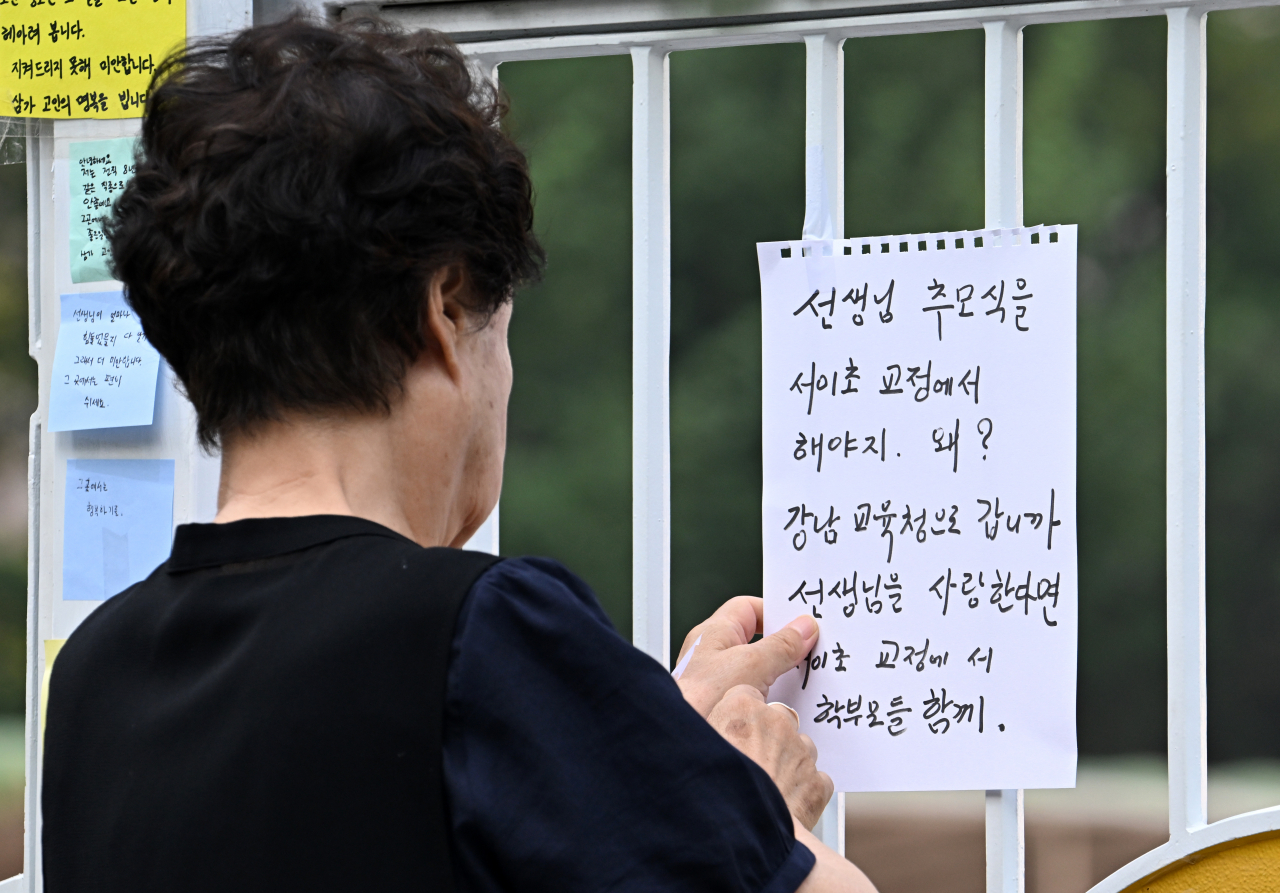 헤아려 봅니다.
지켜드리지 못해 미안합니다.
삼가 고인의 명복을 빕니다
안녕하세요
저는 전직 8년
같은 직종으로
선생님이 얼마나
힘들었을지 다
그래서 더 미안합니다
그 곳에서는 편히
쉬세요.
그곳에서는
행복하기를.
선생님 추모식을
서이초 교정에서
해야지. 왜?
강남 교육청으로 갑니까
선생님을 사랑한다면
서이초 교정에 서
학부모들 함께.